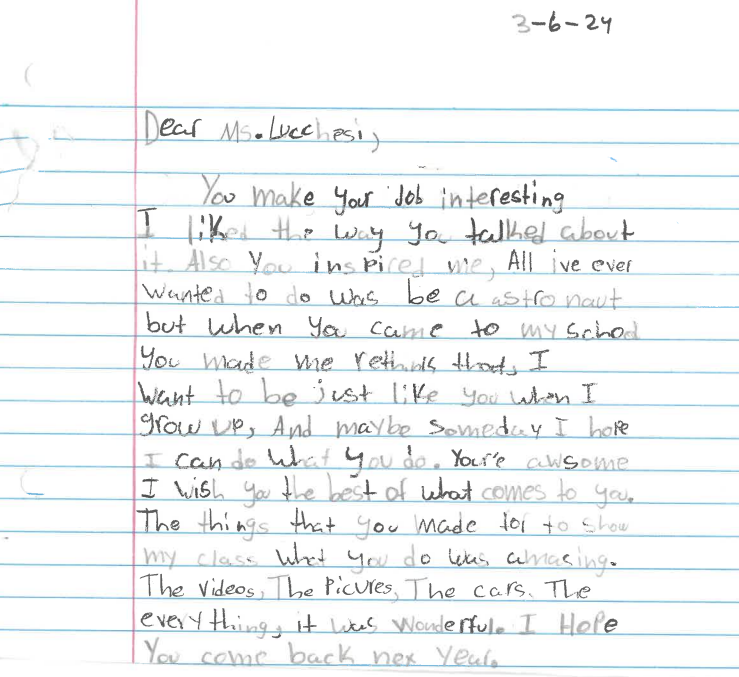 3-6-24
Dear Ms. Lucchesi,
You make your Job interesting
I liked the way you talked about
it. Also you inspired me, All ive ever
wanted to do was be a astronaut
but when you came to my school
you made me rethink that, I
want to be just like you when I
grow up, And maybe someday I hope
I can do what you do. Your'e awsome
I wish you the best of what comes to you.
The things that you made for to show
my class what you do was amasing.
The videos, The Picures, The cars. The
everything, it was wonderful. I Hope
You come back nex year.